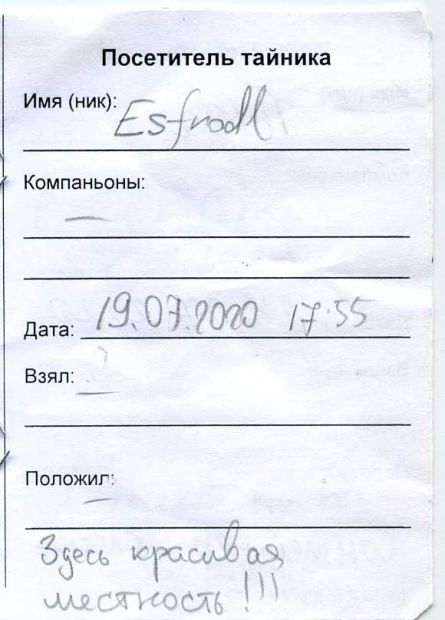 Посетитель тайника
Имя (ник): Esfrodl
Компаньоны:
—
Дата: 19.07.2020 17:55
Взял: —
Положил:
—
Здесь красивая
местность!!!